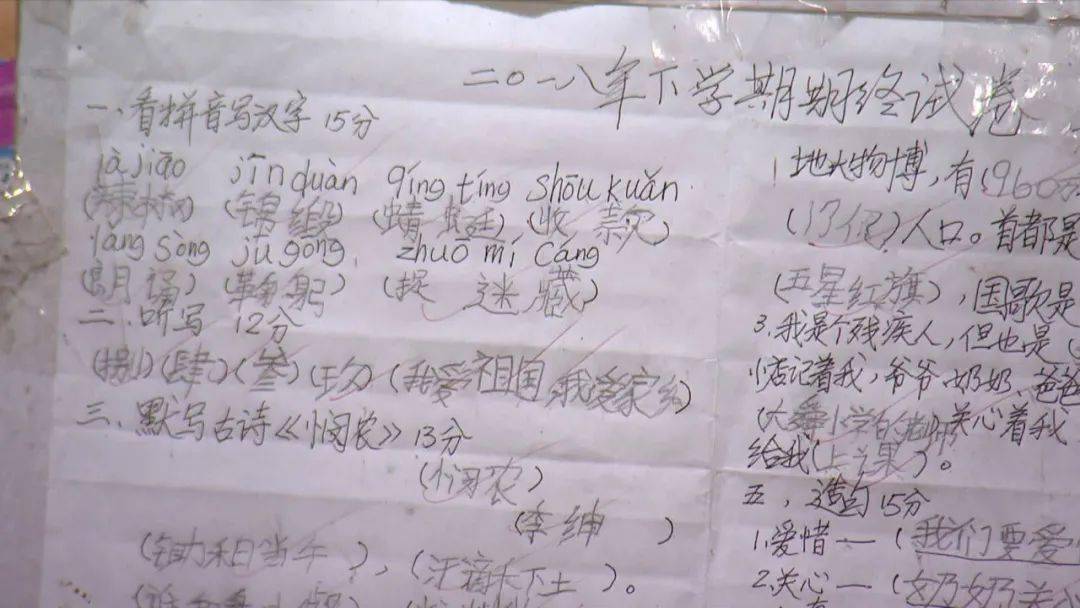 二〇一八年下学期期终试卷
一、看拼音写汉字 15分
là jiāo jǐn duàn qīng tíng shōu kuǎn
(辣椒) (锦缎) (蜻蜓) (收款)
lǎng sòng jū gōng zhuō mí cáng
(朗诵) (鞠躬) (捉迷藏)
二、听写 12分
(捌)(肆)(叁)(玖)(我爱祖国 我爱家乡)
三、默写古诗《悯农》13分
(悯农)
(李绅)
(锄禾日当午),(汗滴禾下土)。
1 地大物博,有(960万
(13亿)人口。首都是
(五星红旗),国歌是
3.我是个残疾人,但也是(
惦记着我,爷爷、奶奶、爸爸
小学的老师)关心着我
给我(上课)。
五、造句 15分
1.爱惜—(我们要爱
2.关心—(奶奶关心